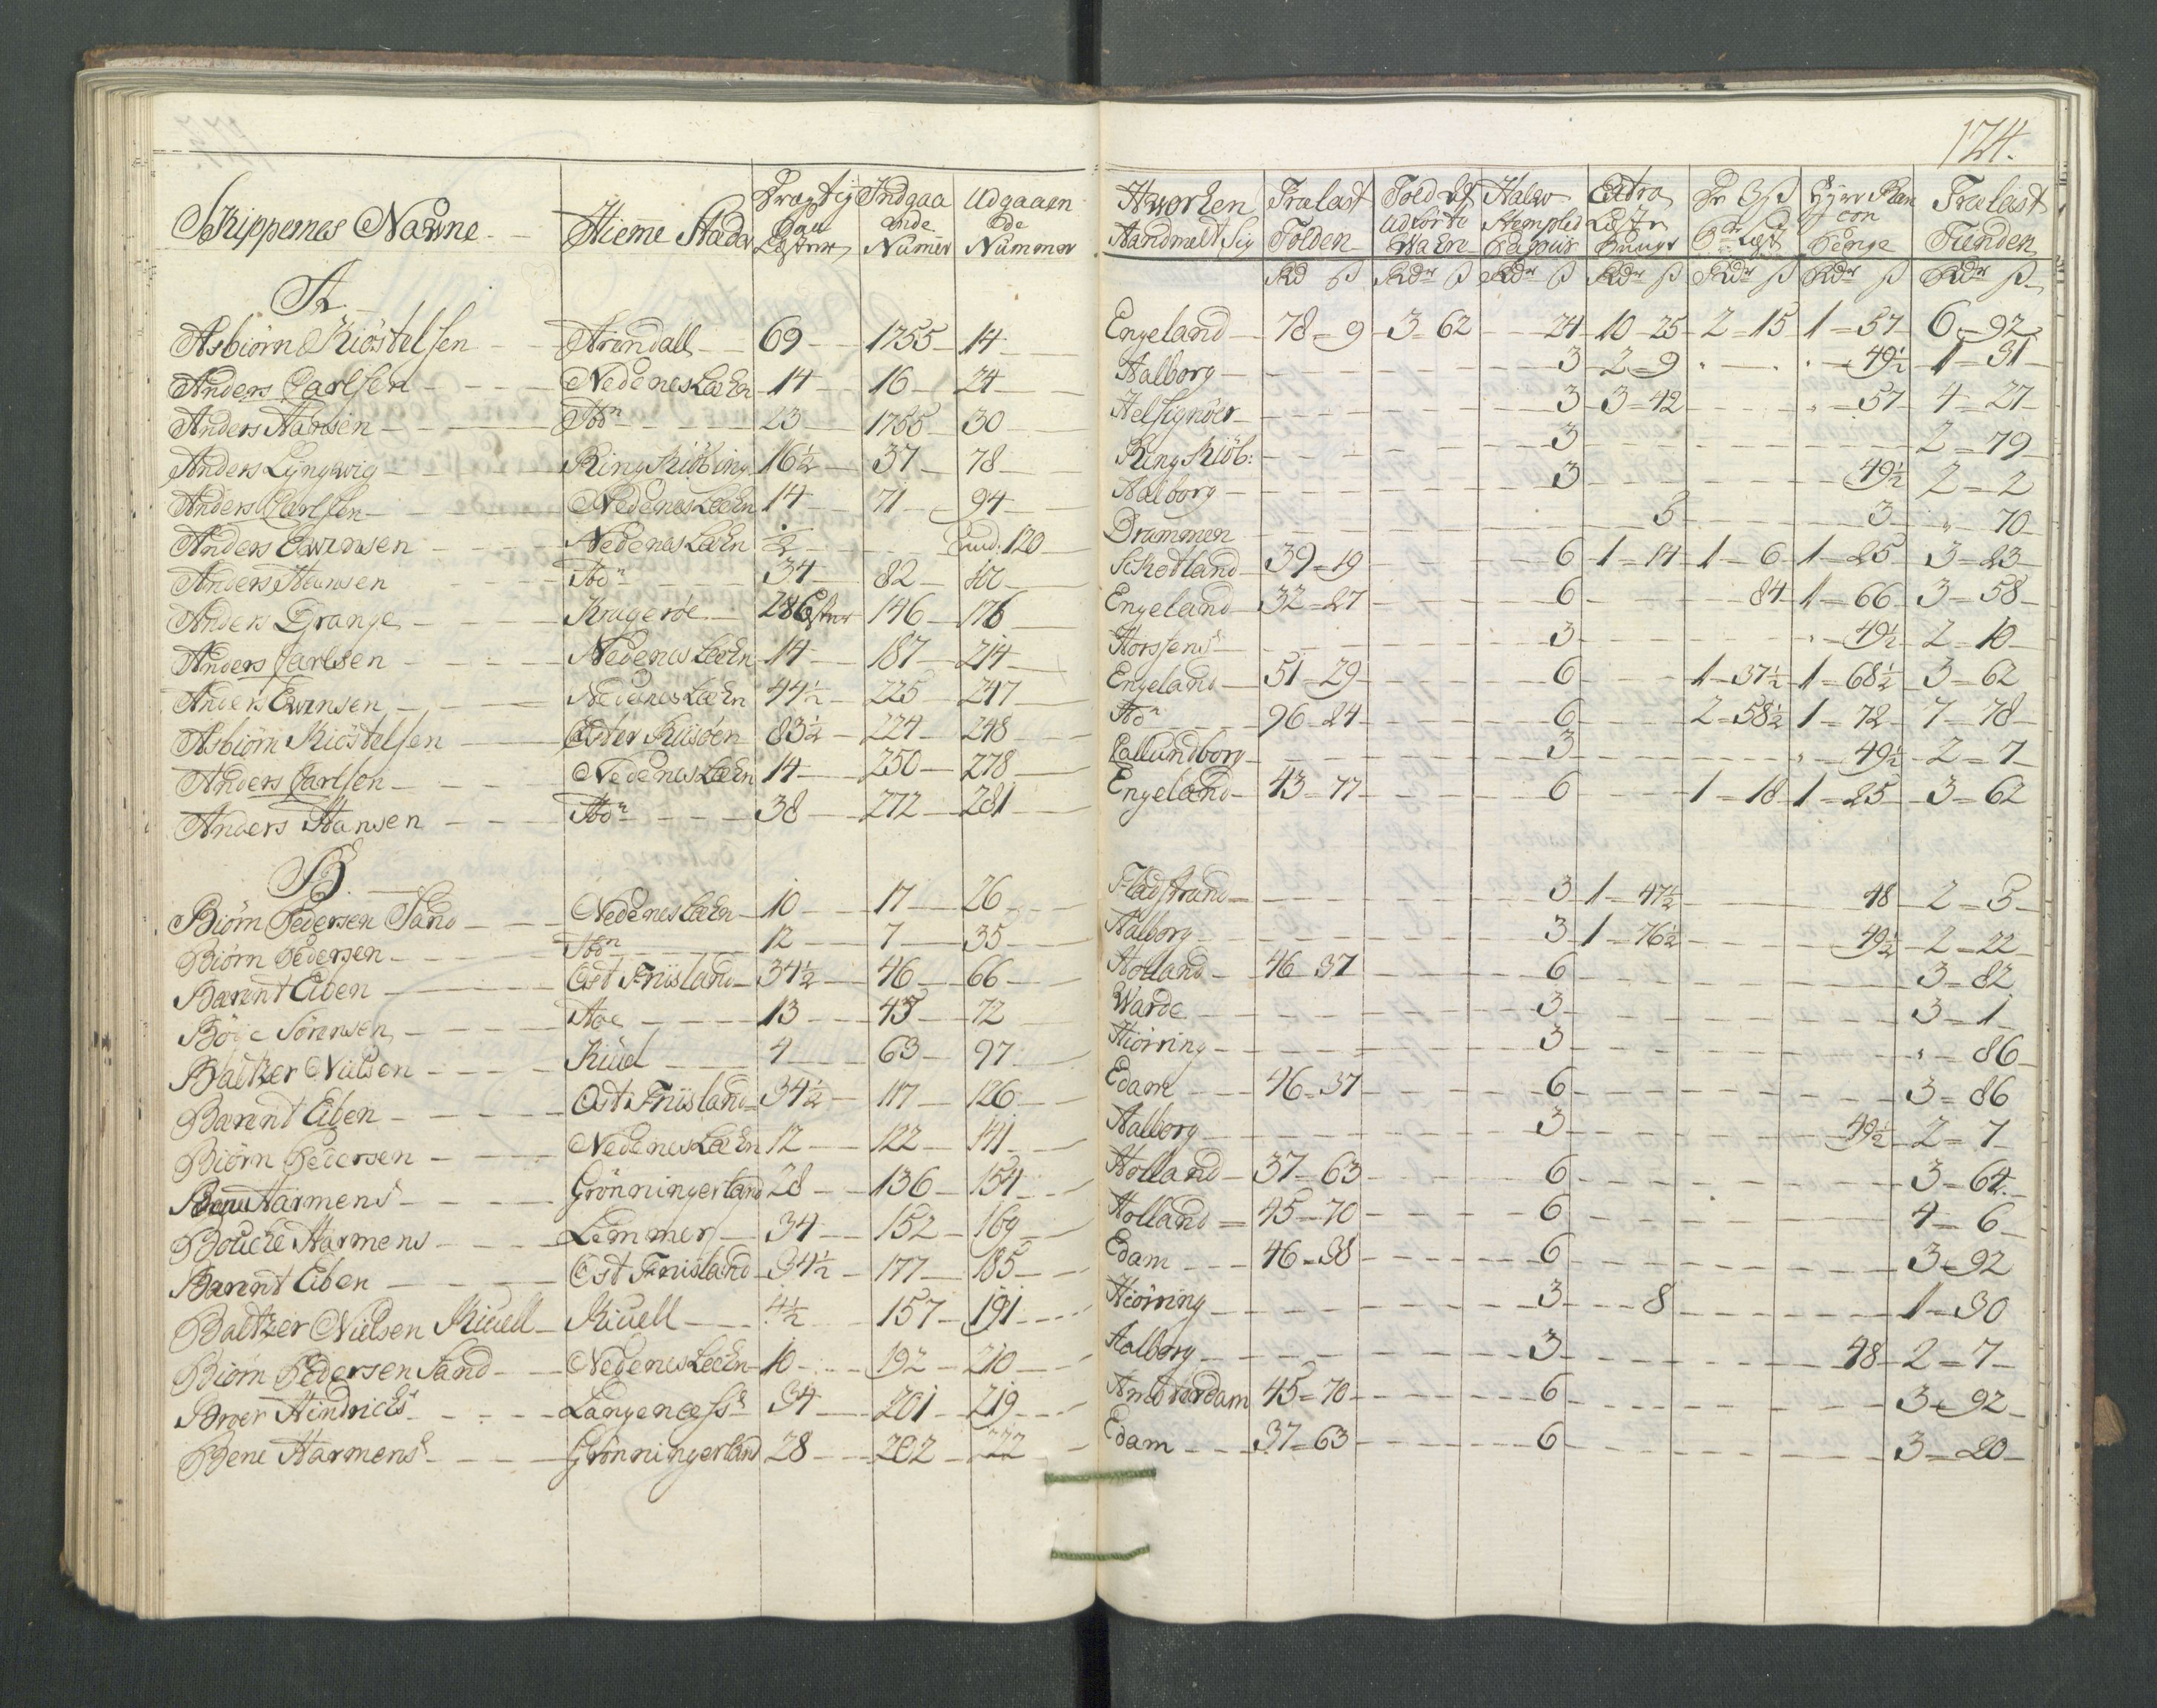 124.
Skippernes Nawne Hieme Stader Drægtig Indgaa Udgaaen
hed ende de
Lester Numer Nummer
Hworhen Tralast Told af Halw Extra
Aandmelt Sig Tolden Udførte Stempled Lester Tralast
Wahre Papiir Penge Tienden
Rd ß Rdr ß Rdr ß Rdr ß Rdr ß Rdr ß Rdr ß
A.
Asbiörn Kiöstelsen Arendall 69 1755 14 Engeland 78 = 9 3 = 62 24 10 = 25 2 = 15 1 = 57 6 = 92
Anders Carlsen Nedenes Læhn 14 16 24 Aalborg 3 2 = 9 49½ 1 = 31
Anders Hansen Ado 23 1755 30 Helsignöer 3 3 = 42 57 4 = 27
Anders Lyngwig Ring Kiöbing 16½ 37 78 Ring Kiöb: 3 2 = 79
Anders Carlsen Nedenes Læhn 14 71 94 Aalborg 3 49½ 2 = 2
Anders Ewensen Nedenes Læhn ½ 120 Drammen 3 3 70
Anders Hansen Ado 34 82 Schotland 39 = 19 6 1 = 14 1 = 6 1 = 25 3 = 23
Anders Grange Kragerøe 28 Lester 146 176 Engeland 32 = 27 6 84 1 = 66 3 = 58
Anders Carlsen Nedenes Læhn 14 187 214 Horssens 3 49½ 2 = 10
Anders Ewensen Nedenes Læhn 44½ 225 247 Engeland 51 = 29 6 1 = 37½ 1 = 68½ 3 = 62
Asbiörn Kiöstelsen Öster Riisöen 83½ 224 248 Ado 96 = 24 6 2 = 58½ 1 = 72 7 = 78
Anders Carlsen Nedenes Læhn 14 250 278 Callundborg 3 49½ 2 = 7
Anders Hansen Ado 38 272 281 Engeland 43 = 77 6 1 = 18 1 = 25 3 = 62
B.
Biörn Pedersen Sand Nedenes Læhn 10 17 26 Fladstrand 3 1 = 47½ 48 2 = 3
Biörn Pedersen Ado 12 7 35 Aalborg 3 1 = 76½ 49½ 2 = 22
Barent Eiben Ost Friisland 34½ 46 66 Holland 46 = 37 6 3 = 82
Böije Sörensen Aoe 13 43 72 Warde 3 3 = 1
Baltzer Nielsen Kiiel 4 63 97 Hiörring 3 86
Barent Eiben Ost Friisland 34½ 117 126 Edam 46 = 37 6 3 = 86
Biörn Pedersen Nedenes Læhn 12 122 141 Aalborg 3 49½ 2 = 7
Harmens Grönningerland 28 136 154 Holland 37 = 63 6 3 = 64
Boucke Harmens Lemmer 34 152 169 Holland 45 = 70 6 4 = 6
Barent Eiben Ost Friisland 34½ 177 185 Edam 46 = 38 6 3 = 92
Baltzer Nielsen Kiuell Kiuell 4½ 157 191 Hiörring 3 8 1 = 30
Biörn Pedersen Sand Nedenes Læhn 10 192 210 Aalborg 3 48 2 = 7
Broer Hindrichs Langenees 34 201 219 Amsterdam 45 = 70 6 3 = 92
Bene Harmens Grönningerland 28 202 222 Edam 37 = 63 6 3 = 20